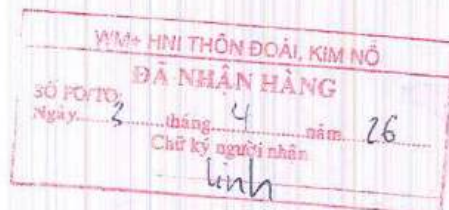 WM+ HNI THÔN ĐOÀI, KIM NỖ
ĐÃ NHẬN HÀNG
SỐ PO/TO:
Ngày 3 tháng 4 năm 26
Chữ ký người nhận
Linh